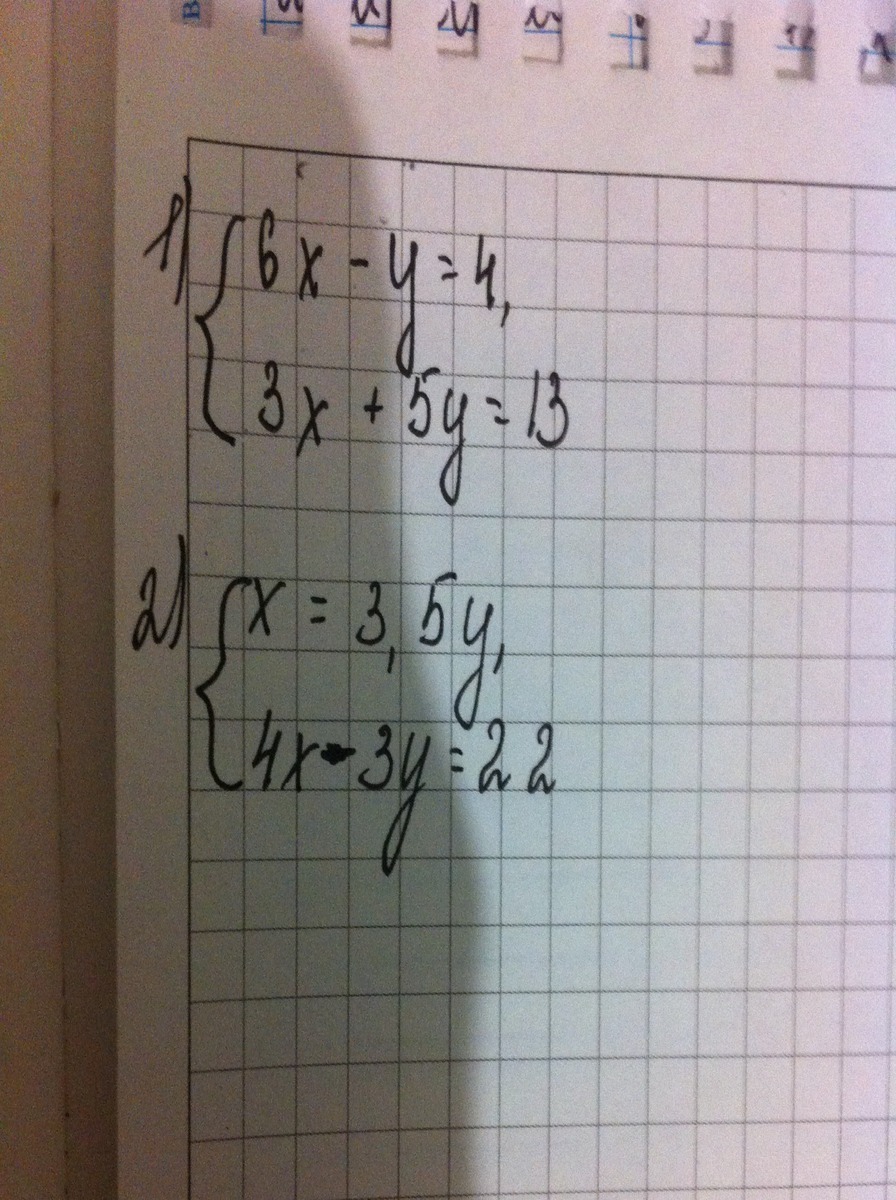 1) { 6x - y = 4,
3x + 5y = 13
2) { x = 3,5y,
4x - 3y = 22